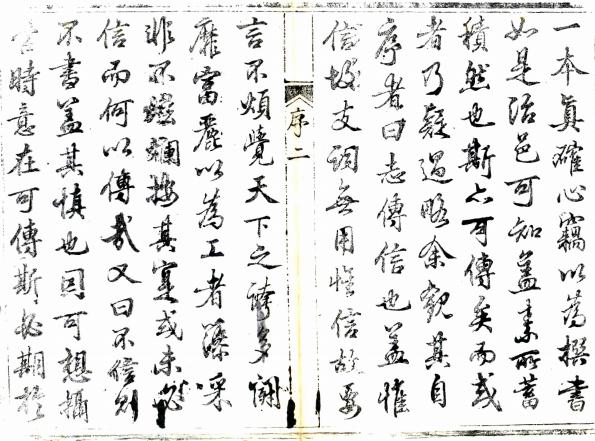 一本真確心竊以為撰書
如是治邑可知蓋素所蓄
積然也斯亦可傳矣而或
者乃疑過略余觀其自
序者曰志傳信也蓋惟
信故支詞無用惟信故要
序二
言不煩覺天下之誇多鬪
靡富麗以為工者藻采
非不斕按其實或未必
信而何以傳哉又曰不信則
不書蓋其慎也固可想攝
時意在可傳斯必期於